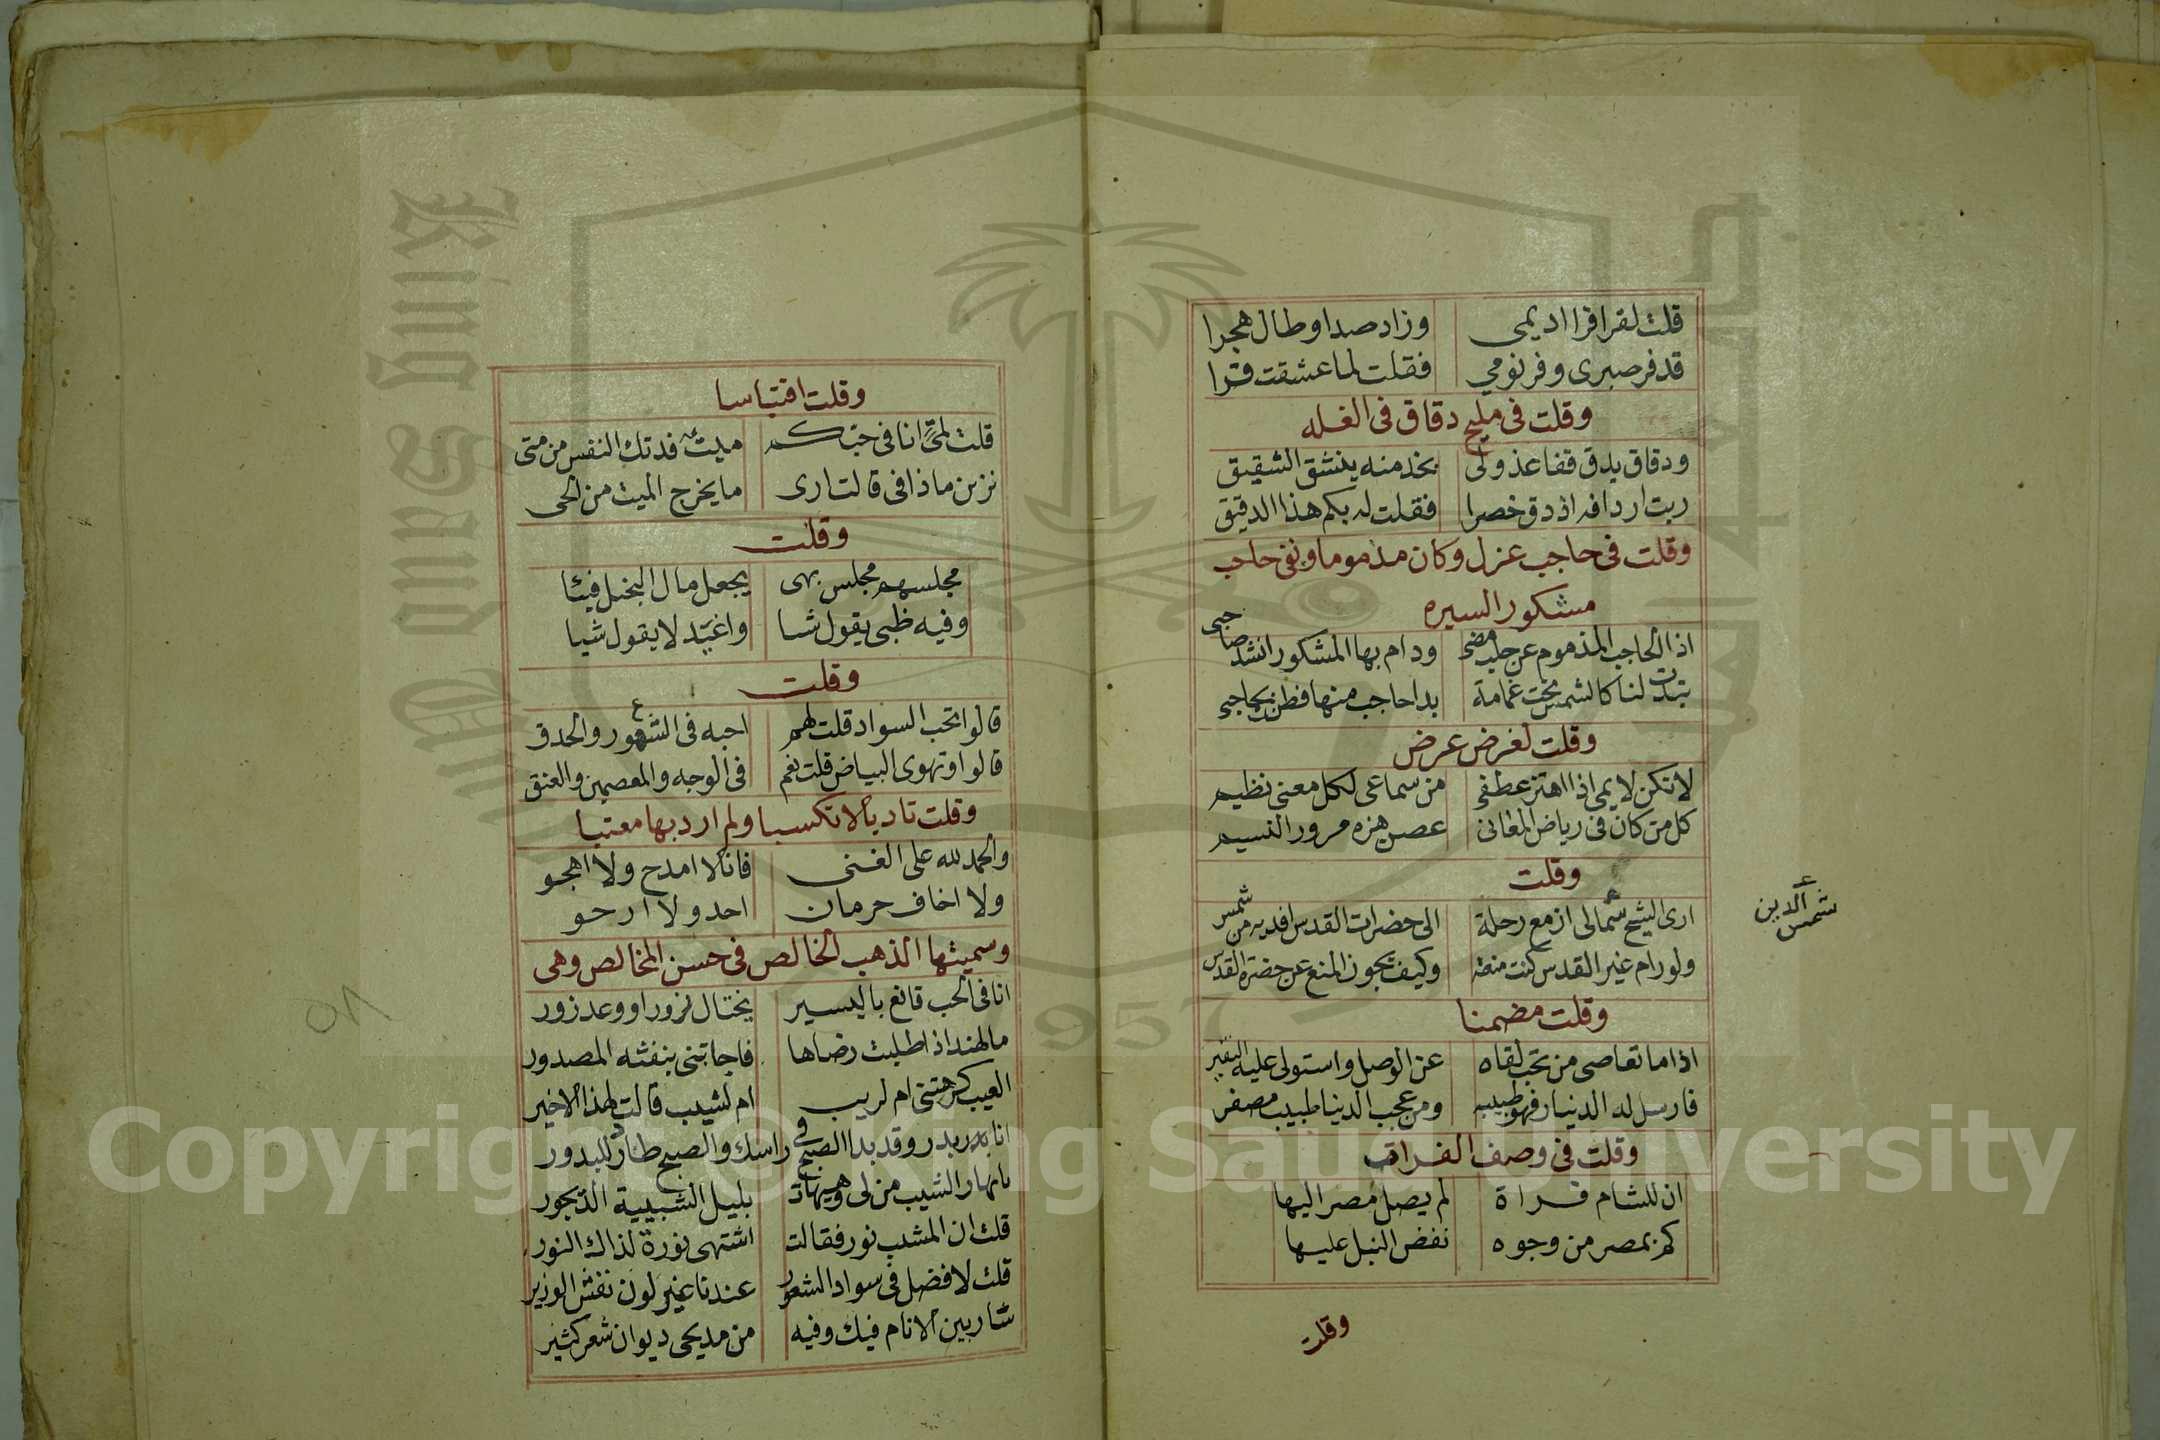 قلت لقرا فرا اديمي وزاد صدا وطال هجرا
قد فر صبرى وفر نومي فقلت لما عشقت قرا
وقلت فى مليح دقاق فى الغله
ودقاق يدق قفا عذولى بخد منه ينشق الشقيق
ربت اردافه اذ دق خصرا فقلت له بكم هذا الدقيق
وقلت فى حاجب عزل وكان مذموما وبقى حاجب
مشكور السيره
اذا الحاجب المذموم عن حلب مضى ودام بها المشكور انشد صاحبى
تبدت لنا كالشمس تحت غمامة بدا حاجب منها فظن بحاجب
وقلت لغرض عرض
لا تكن لايمى اذا اهتز عطفى من سماعى لكل معنى نظيم
كل من كان فى رياض المغانى غصن هزه مرور النسيم
وقلت
ارى الشيخ شما لى ازمع رحلة الى حضرات القدس افديه من شمس
ولو رام غير القدس كنت منعته وكيف يجوز المنع عن حضرة القدس
شمس الدين
وقلت مضمنا
اذا ما تعاصى من تحب لقاه عن الوصل واستولى عليه
فارسل له الدينار فهو طبيبه ومن عجب الدنيا طبيب مصفر
وقلت فى وصف
ان للشام لم يصل مصر اليها
كم بمصر من وجوه نفض النيل عليها
وقلت
وقلت اقتباسا
قلت لمىّ انا فى حبكم ميت فدتك النفس من متى
نزين ماذا فى قالت ارى ما يخرج الميت من الحى
وقلت
مجلسهم مجلس بهى يجعل مال البخيل فيئا
وفيه ظبى يقول شا واغيد لا يقول شيا
وقلت
قالوا تحب السواد قلت لهم احبه فى الشعور والحدق
قالوا وتهوى البياض قلت نعم فى الوجه والمعصمين والعنق
وقلت تادبا لا تكسبا ولم ارد بها معتبا
والحمد لله على الغنى فانا لا امدح ولا اهجو
ولا اخاف حرمان احد ولا ارجو
وسميتها الذهب الخالص فى حسن المخالص وهى
انا فى الحب قانع باليسير بختال نزور او وعد زور
ما لهند اذ اطلبت رضاها فاجابتنى بنفثه المصدور
العيب كرهتنى ام لريب ام لشيب قالت لهذا الاخير
انا بدر وقد بدا الصبح فى راسك والصبح طارد للبدور
يا نهار الشيب من لى وهيهات بليل الشبيبة الديجور
قلت ان المشيب نور فقالت اشتهى نورة لذاك النور
قلت لا فضل فى سواد الشعور عندنا غير لون نقش الوزير
شار بين الانام فيك وفيه من مديحى ديوان شعر كثير
Copyright © King Saud University
King Saud University
1957